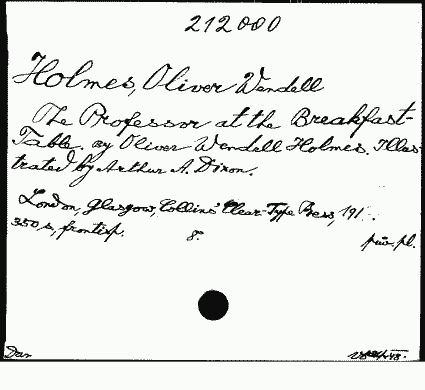 212000
Holmes, Oliver Wendell
The Professor at the Breakfast-
Table. By Oliver Wendell Holmes. Illus-
trated by Arthur A. Dixon.
London, Glasgow, Collins' Clear-Type Press, 191 .
350 s, frontisp. 8.
pl.
Dar